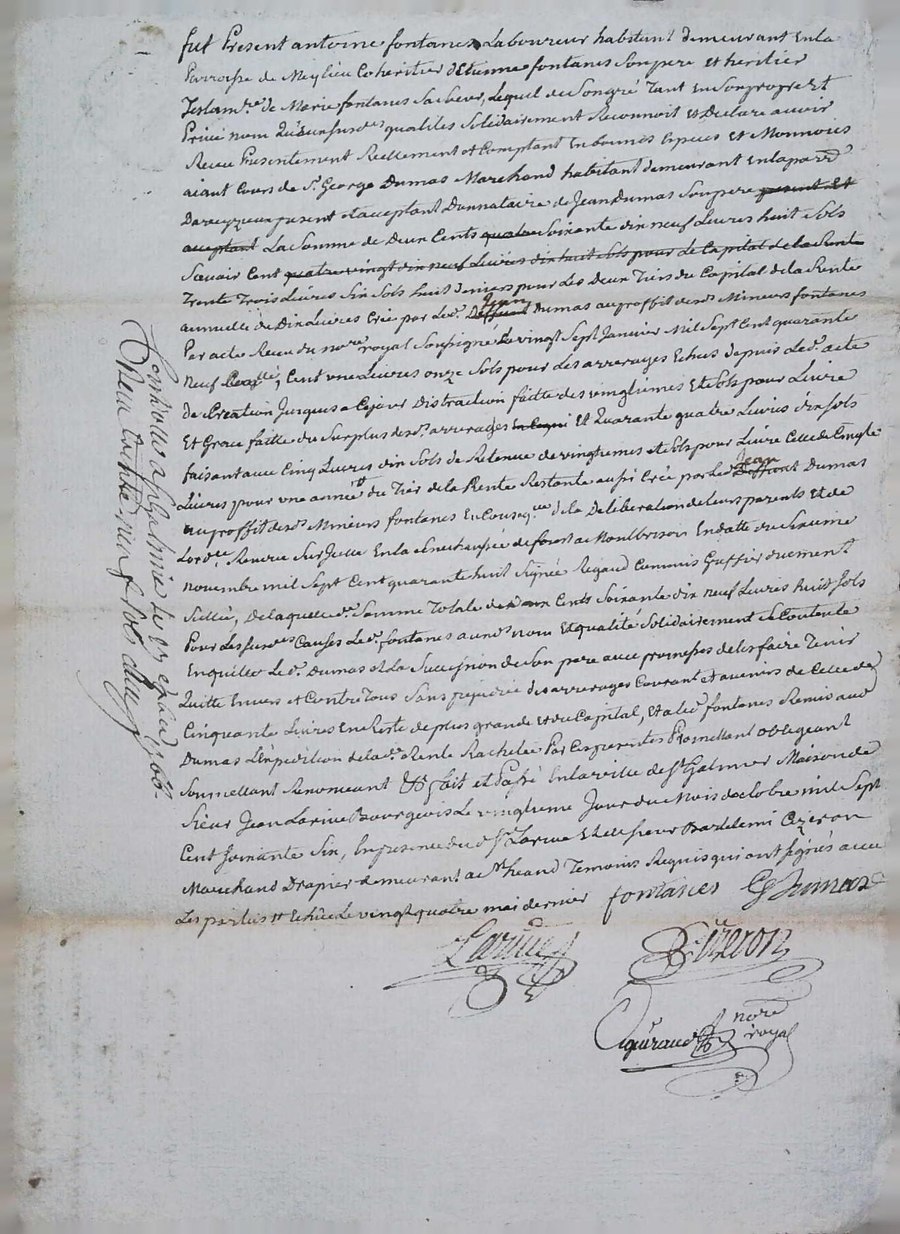 fut Present antoine fontanes Laboureur habitant demeurant En la
Parroisse de Meylieu Coheritier d'Etienne fontanes Son pere et heritier
Testam.re de Marie fontanes Sa Soeur, Lequel de Son gré Tant en Son propre et
Privé nom Qu'Esusd.es qualites Solidairement Reconnoit et Declare avoir
Receu Presentement Reellement et Comptant En bonnes Especes Et Monnoies
aiant Cours de S.r George Dumas Marchand habitant demeurant En la par.se
present et acceptant Donnataire de Jean Dumas Son pere present Et
acceptant La Somme de Deux Cents quatre Soixante dix neuf Livres huit Sols
Scavoir Cent quatre vingt dix neuf Livres dix huit Sols pour Le Capital de la Rente
Trente Trois Livres Six Sols huit deniers pour Les Deux Tiers du Capital de la Rente
annuelle de Dix Livres Créé par Led. Jean Deffunt Dumas au proffit desd. Mineurs fontanes
Par acte Receu du no.re royal Soussigné Le vingt Sept Janvier Mil Sept Cent quarante
neuf, Cent une Livres onze Sols pour Les arrerages Echus depuis Led. acte
de Creation Jusques a Ce jour Distraction faitte des vingtiemes Et Sols pour Livre
Et Grace faitte du Surplus desd. arrerages Et Quarante quatre Livres dix Sols
faisant avec Cinq Livres dix Sols de Retenue de vingtiemes et Sols pour Livre Celle de Cinqte
Livres pour une année du Tier de la Rente Restante aussi Créé par Led. Jean Deffunt Dumas
au proffit desd. Mineurs fontanes En Conseq.ce de la Deliberation de Leurs parents Et de
Lord.ce Rendue Sur Jcelle En la Senechaussée de forest a Montbrison En datte du Seizieme
novembre mil Sept Cent quarante huit Signée Regaud Commis Greffier duement
Scellée, De laquelle d. Somme Totale de deux Cents Soixante dix neuf Livres huit Sols
Pour Les susd.es Causes Led. fontanes aud. nom Et qualité Solidairement Se Contente
En quitte Led. Dumas et La Succession de Son pere avec promesse de les faire Tenir
Quitte Envers et Contre Tous Sans prejudice des arrerages Courant et avenirs de Celle de
Cinquante Livres En Reste de plus grande Et du Capital, Et a led. fontanes Remis aud.
Dumas L'Expedition de lad. Rente Rachetée Par Ces presentes Promettant obligeant
Soumettant Renonceant &c fait et Passé En la ville de St Galmier Maison de
Sieur Jean Larive Bourgeois Le vingtieme Jour du Mois d'octobre mil Sept
Cent Soixante Six, En presence dud. S.r Larive Et de Sieur Bartelemi Ozeron
Marchand Drapier demeurant a St heand Temoins Requis qui ont Signés avec
Les parties Et Echue Le vingt quatre mai dernier fontanes G Dumas
Larive
B Ozeron
guiraud no.re
royal
Controllé a St Galmier le
Receu trente neuf Sols